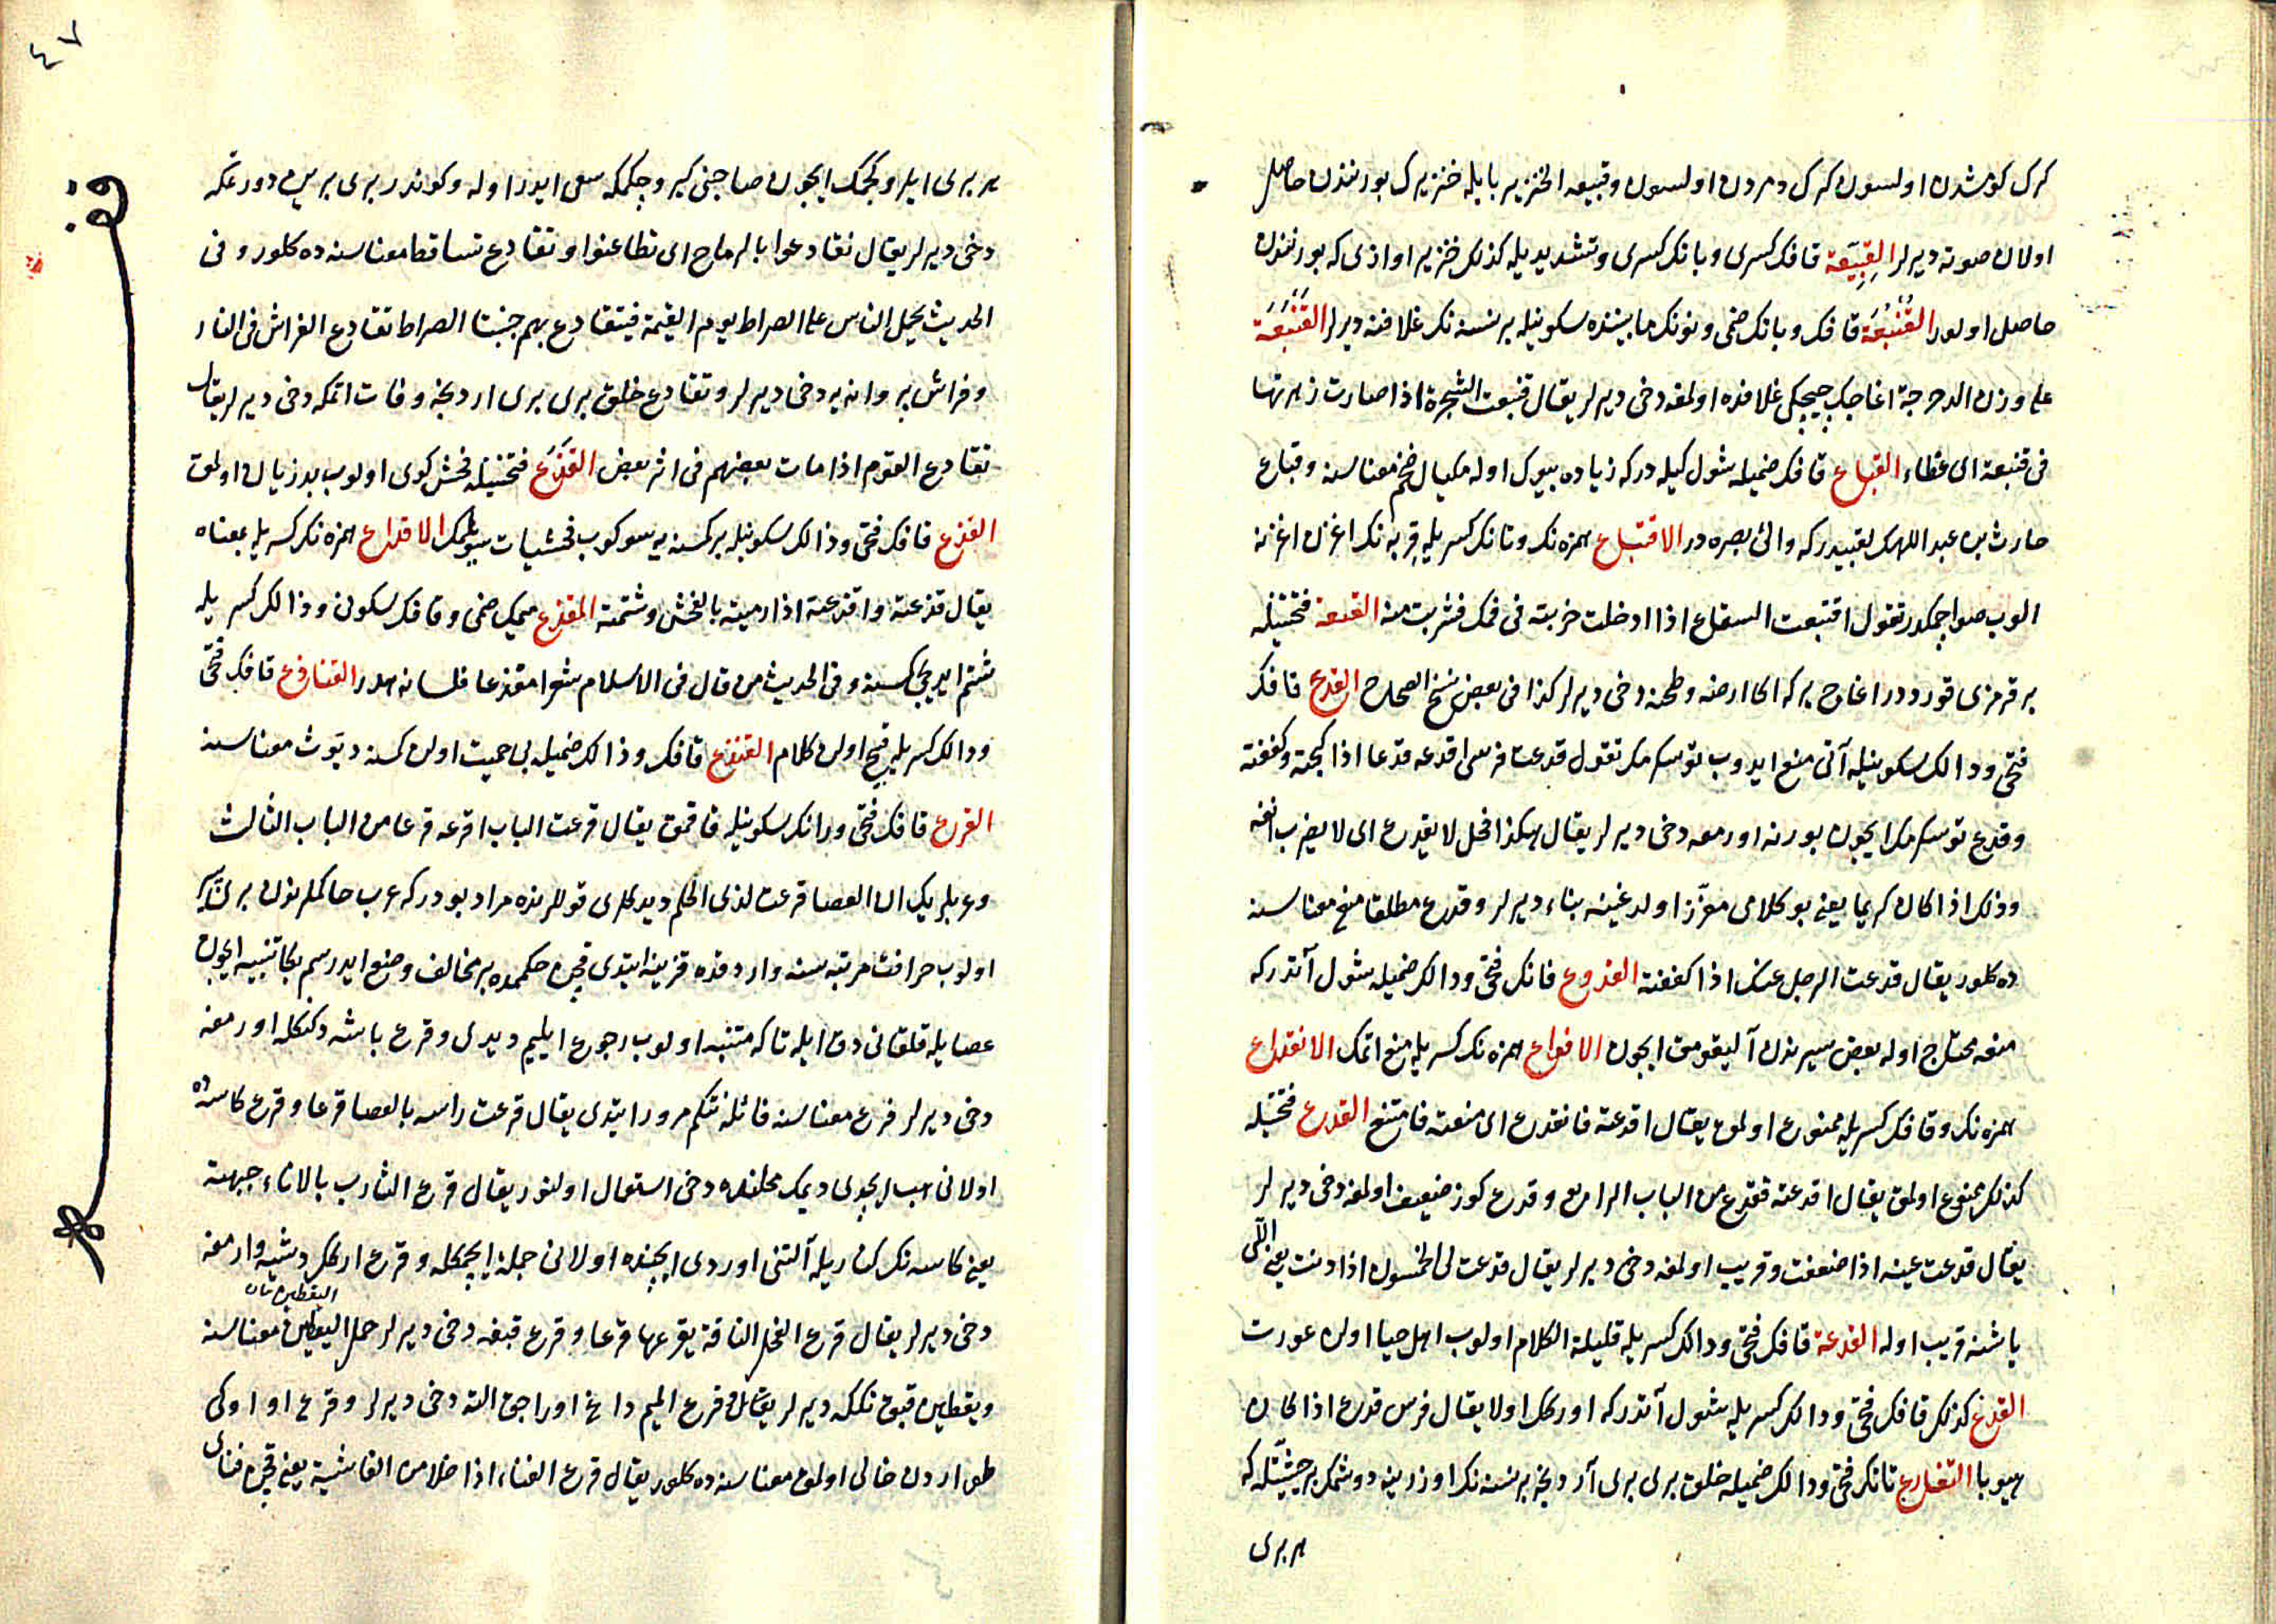 كرك كومشدن اولسون كرك دمردن اولسون وقبيعه الخنزير با يله خنزيرك بورنندن حاصل
اولان صوته ديرلر القِبِيّعة قافك كسرى وبانك كسرى وتشديديله كذلك خنزير اوازى كه بورنندن
حاصل اولور القُنْبُعَة قافك وبانك ضمى ونونك مابيننده سكونيله برنسنه نك غلافنه ديرلر القَنْبَعَة
على وزن الدحرجة اغاجك چيچكى غلافنده اولمغه دخى ديرلر يقال قنبعت الشجرة اذا صارت زهرتها
فى قنبعة اى غطاء القباع قافك ضميله شول كيله در كه زياده بيوك اوله مكيال ضخم معناسنه وقباع
حارث بن عبد اللهك لقبيدر كه والئ بصره در الاقتباع همزه نك وتانك كسريله قربه نك اغزن اغزنه
الوب صو ايچمكدر تقول اقتبعت السقاع اذا ادخلت خربته فى فمك فشربت منه القتعه فتحتيله
بر قرمزى قورددر اغاج يركه اكا ارضه وطحنه دخى ديرلر كذا فى بعض نسخ الصحاح القدع قافك
فتحى ودالك سكونيله آتى منع ايدوب توسكرمك تقول قدعت فرسى اقدعه قدعا اذا كبحته وكففته
وقدع توسكرمك ايچون بورنه اورمغه دخى ديرلر يقال هكذا فحل لا يقدع اى لا يضرب انفه
وذلك اذا كان كريما يعنى بو كلامى معزز اولدغينه بناء ديرلر وقدع مطلقا منع معناسنه
ده كلور يقال قدعت الرجل عنك اذا كففته القدوع قانك فتحى ودالك ضميله شول آتدر كه
منعه محتاج اوله بعض سيرندن آليقومق ايچون الاقداع همزه نك كسريله منع اتمك الانقداع
همزه نك وقافك كسريله ممنوع اولمق يقال اقدعته فانقدع اى منعته فامتنع القدع فتحتيله
كذلك ممنوع اولمق يقال اقدعته فقدع من الباب الرابع وقدع كوز ضعيف اولمغه دخى ديرلر
يقال قدعت عينه اذا ضعفت وقريب اولمغه دخى ديرلر يقال قدعت لى الخمسون اذا دنت يعنى اللى
ياشنه قريب اوله القدعة قافك فتحى ودالك كسريله قليلة الكلام اولوب اهل حيا اولن عورت
القدع كذلك قافك فتحى ودالك كسريله شول آتدر كه اورككل اولا يقال فرس قدع اذا كان
هيوبا التقادع تانك فتحى ودالك ضميله خلق برى برى آردنجه برنسنه نك اوزرينه دوشمك بر حيثيتله كه
هر برى
٤٧
هر برى ايلرو كچمك ايچون صاحبنى كيرو چكمكه سعى ايدر اوله وكوندر برى برين دورتمكه
دخى ديرلر يقال تقادعوا بالرماح اى تطاعنوا وتقادع تساقط معناسنه ده كلور وفى
الحديث يحمل الناس على الصراط يوم القيمة فيتقادع بهم جنبتا الصراط تقادع الفراش فى النار
وفراش پروانه يه دخى ديرلر وتقادع خلق برى برى اردنجه وفات اتمكه دخى ديرلر يقال
تقادع القوم اذا مات بعضهم فى اثر بعض القَذَع فتحتيله فحش كوى اولوب بد زبان اولمق
القذع قافك فتحى وذالك سكونيله بركمسنه يه سوكوب فحشيات سويلمك الاقذاع همزه نك كسريله بمعناه
يقال قذعته واقذعته اذا رميته بالفحش وشتمته المقذع ميمك ضمى وقافك سكون وذالك كسريله
شتم ايديجى كمسنه وفى الحديث من قال فى الاسلام شعرا مقذعا فلسانه هدر القناذع قافك فتحى
وذالك كسريله قبيح اولن كلام القنذع قافك وذالك ضميله بى حميت اولن كمسنه ديوث معناسنه
القرع قافك فتحى ورانك سكونيله قاقمق يقال قرعت الباب اقرعه قرعا من الباب الثالث
وعربلريك ان العصا قرعت لذى الحلم ديدكلرى قوللرنده مراد بودر كه عرب حاكملرندن برى پير
اولوب خرافت مرتبه سنه واردقده قزينه ايتدى قچن حكممده بر مخالف وضع ايدرسم بكا تنبيه ايچون
عصايله قلقانى دق ايله تا كه متنبه اولوب رجوع ايليم ديدى وقرع باشه دكنكله اورمغه
دخى ديرلر قرع معناسنه قائله نتكم مرور ايتدى يقال قرعت راسه بالعصا قرعا وقرع كاسه ده
اولانى هب ايچدى ديمك محلنده دخى استعمال اولنور يقال قرع الشارب بالاناء جبهته
يعنى كاسه نك كناريله آلتنى اوردى ايچنده اولانى جملة ايچمكله وقرع اركك ديشيه وارمغه
دخى ديرلر يقال قرع الفحل الناقة يقرعها قرعا وقرع قبغه دخى ديرلر حمل اليقطين معناسنه
ويقطين قبق تككه ديرلر يقال قرع الميم داغ اوراجق الته دخى ديرلر وقرع او اوكى
طوارددن خالى اولمق معناسنه ده كلور يقال قرع الفناء اذا خلا من الغاشية يعنى قچن فناى